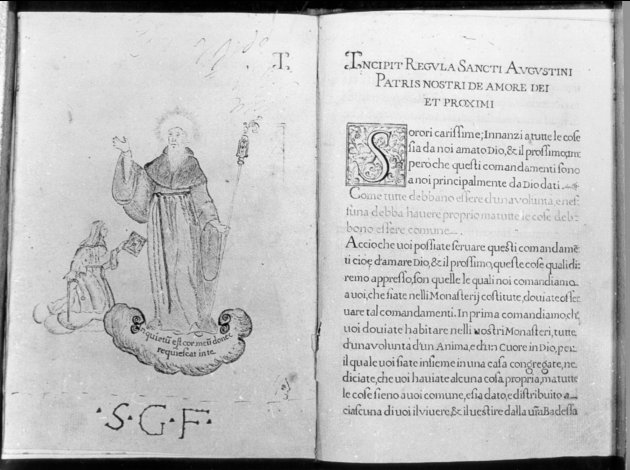 quietū est cor meū donec
requiescat in te.
·S·G·F·
INCIPIT REGVLA SANCTI AVGVSTINI
PATRIS NOSTRI DE AMORE DEI
ET PROXIMI
Sorori carissime; Innanzi a tutte le cose
sia da noi amato Dio, & il prossimo, im
pero che questi comandamenti sono
a noi principalmente da Dio dati.
Come tutte debbano essere d'una volunta, e nes
suna debba hauere proprio ma tutte le cose deb
bono essere comune.
Accioche uoi possiate seruare questi comandamē
ti cioe, d'amare Dio, & il prossimo, queste cose quali di
remo appresso, son quelle le quali noi comandiamo
a uoi, che siate nelli Monasterij costitute, douiate osser
uare tal comandamenti. In prima comandiamo, ch̄
uoi douiate habitare nelli uostri Monasteri, tutte
d'una volunta d'un Anima, e d'un Cuore in Dio, per
il quale uoi siate insieme in una casa congregate, ne
diciate, che uoi hauiate alcuna cosa propria, ma tutte
le cose sieno a uoi comune, e sia dato, e distribuito a
ciascuna di uoi il uiuere, & il uestire dalla ur̄a Badessa